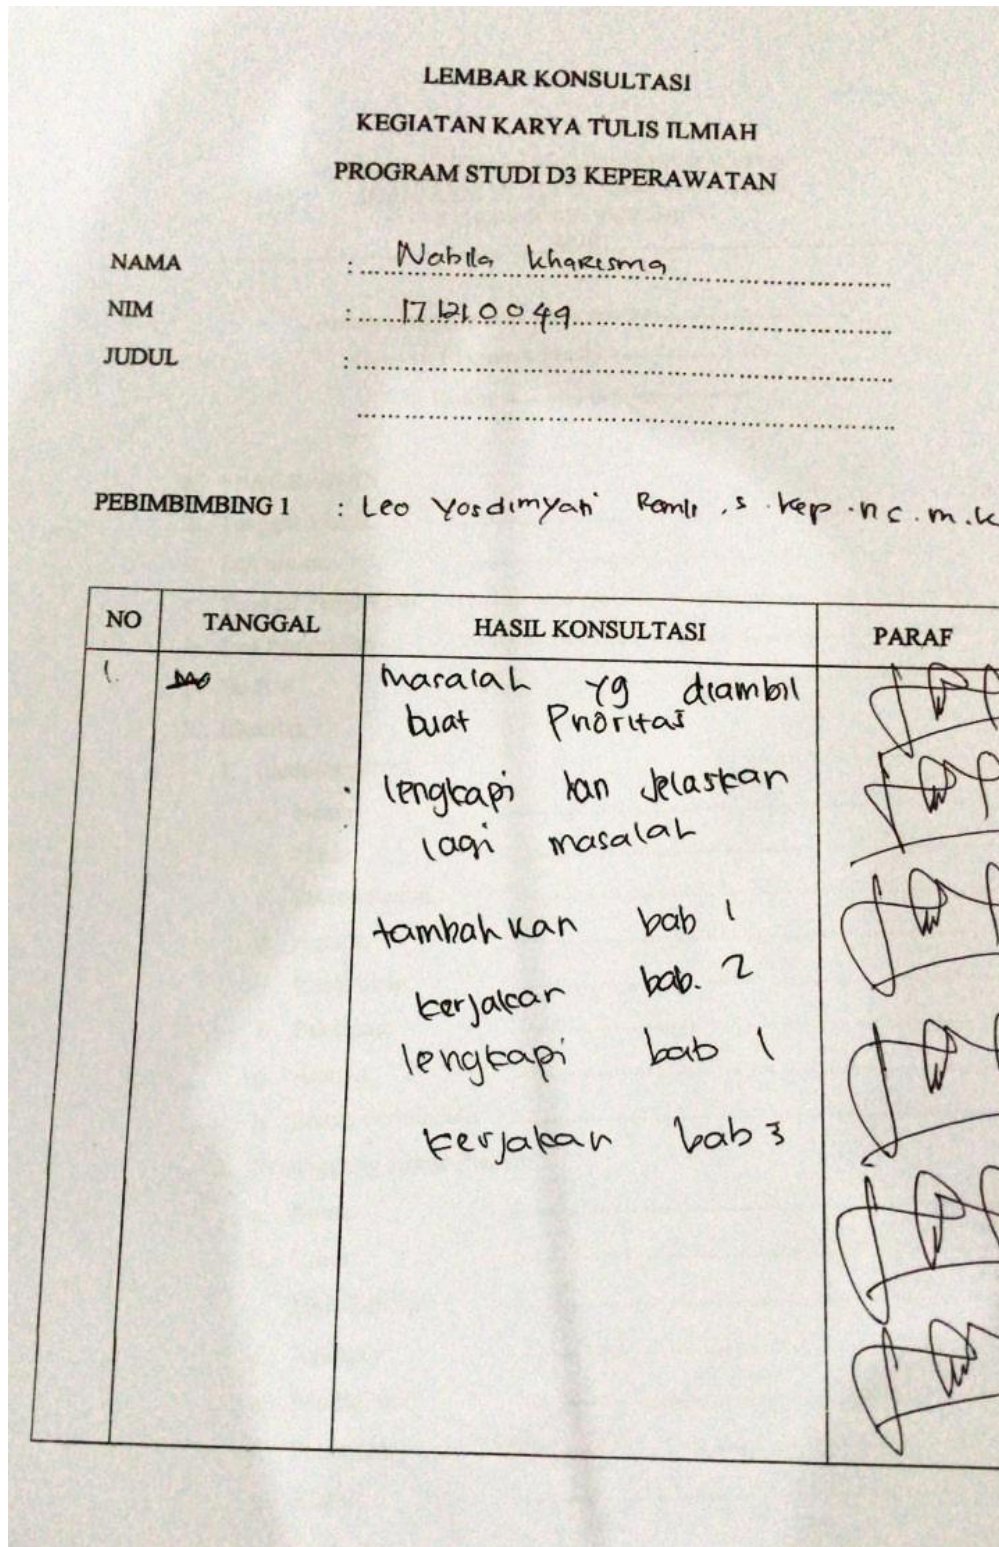 LEMBAR KONSULTASI
KEGIATAN KARYA TULIS ILMIAH
PROGRAM STUDI D3 KEPERAWATAN
NAMA : Nabila Kharisma
NIM : 17210049
JUDUL :
PEBIMBIMBING 1 : Leo Yosdimyati Romli, s.kep.ns.m.k
NO TANGGAL HASIL KONSULTASI PARAF
1. masalah yg diambil
buat Prioritas
lengkapi dan jelaskan
lagi masalah
tambahkan bab 1
kerjakan bab. 2
lengkapi bab 1
kerjakan bab 3